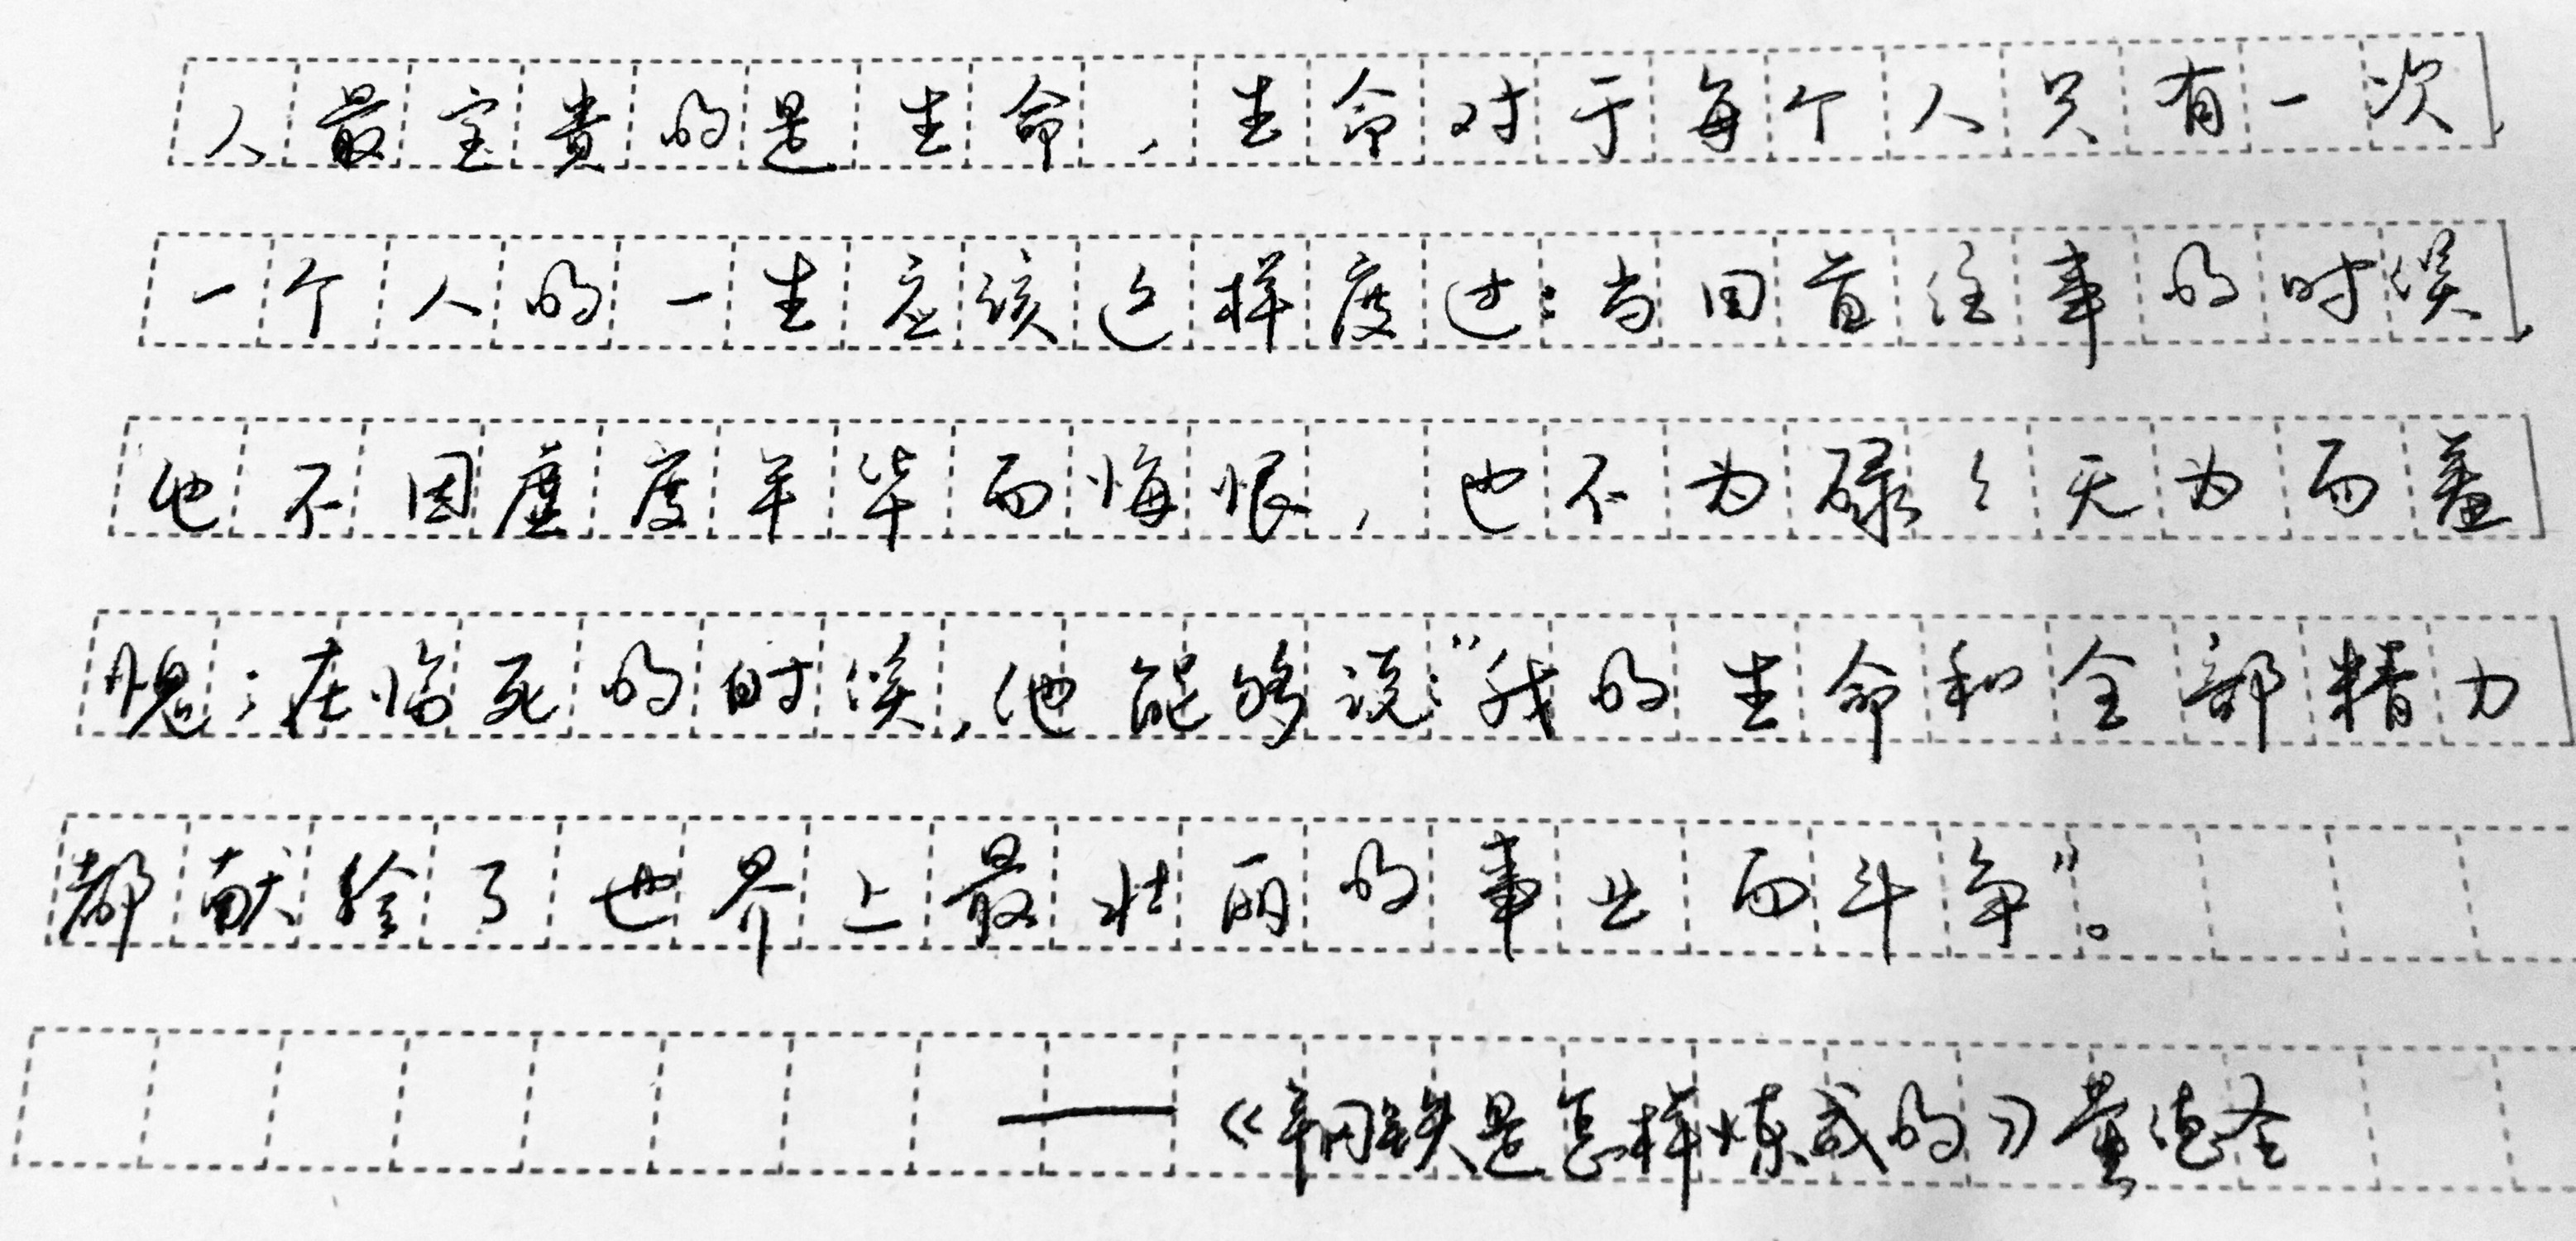 人最宝贵的是生命，生命对于每个人只有一次，
一个人的一生应该这样度过：当回首往事的时候，
他不因虚度年华而悔恨，也不为碌々无为而羞
愧；在临死的时候，他能够说："我的生命和全部精力
都献给了世界上最壮丽的事业而斗争"。
——《钢铁是怎样炼成的》董德圣